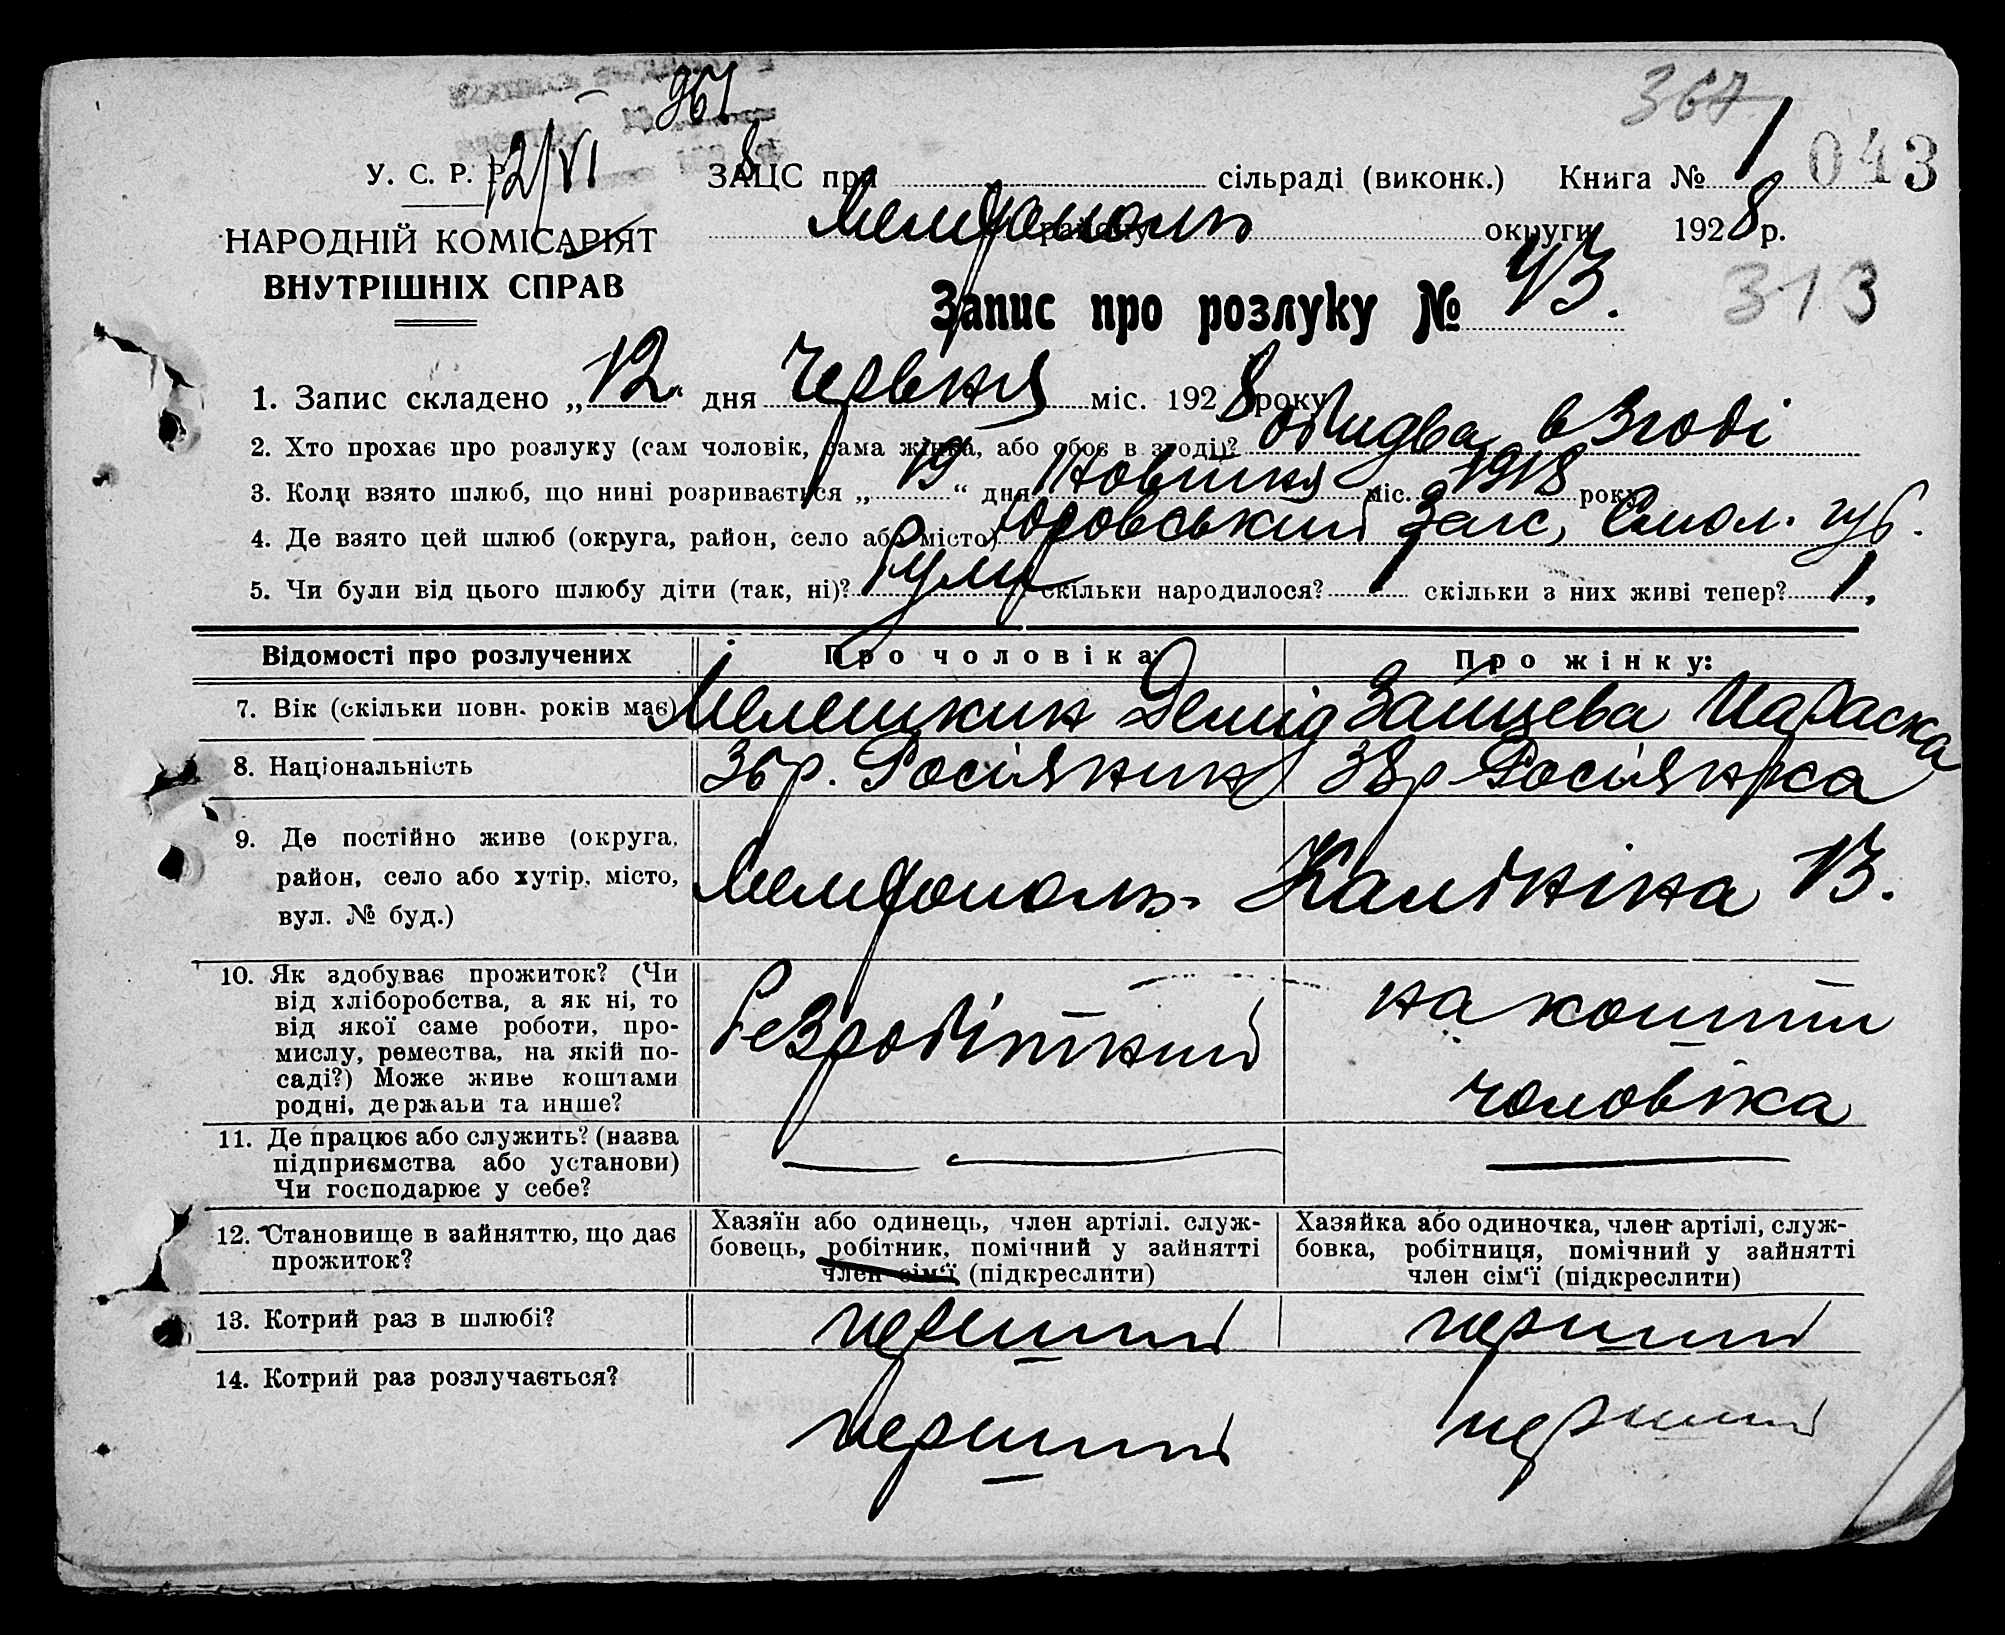 961 367
У. С. Р. Р. 12/VI ЗАЦС при сільраді (виконк.) Книга № 1 043
Мелітополь району округи 1928 р.
НАРОДНІЙ КОМІСАРІЯТ
ВНУТРІШНІХ СПРАВ
Запис про розлуку № 43. 313
1. Запис складено „12“ дня Червня міс. 1928 року
2. Хто прохає про розлуку (сам чоловік, сама жінка, або обоє в згоді)? обидва в згоді
3. Коли взято шлюб, що нині розривається „19“ дня міс. 1918 року
4. Де взято цей шлюб (округа, район, село або місто) Загс, Смол. губ.
5. Чи були від цього шлюбу діти (так, ні)? були скільки народилося? 1 скільки з них живі тепер? 1,
Відомості про розлучених Про чоловіка: Про жінку:
7. Вік (скільки повн. років має) Мелешкин Демид Зайцева Параска
8. Національність 36 р. Росіянин 38 р. Росіянка
9. Де постійно живе (округа,
район, село або хутір, місто,
вул. № буд.)
Мелітополь. Калініна 13.
10. Як здобуває прожиток? (Чи
від хліборобства, а як ні, то
від якої саме роботи, про-
мислу, ремества, на якій по-
саді?) Може живе коштами
родні, держави та инше?
Безробітний на кошти
чоловіка
11. Де працює або служить? (назва
підприємства або установи)
Чи господарює у себе?
12. Становище в зайняттю, що дає
прожиток?
Хазяїн або одинець, член артілі. служ-
бовець, робітник, помічний у зайнятті
член сім‘ї (підкреслити)
Хазяйка або одиночка, член артілі, служ-
бовка, робітниця, помічний у зайнятті
член сім‘ї (підкреслити)
13. Котрий раз в шлюбі? перший перший
14. Котрий раз розлучається? перший перший